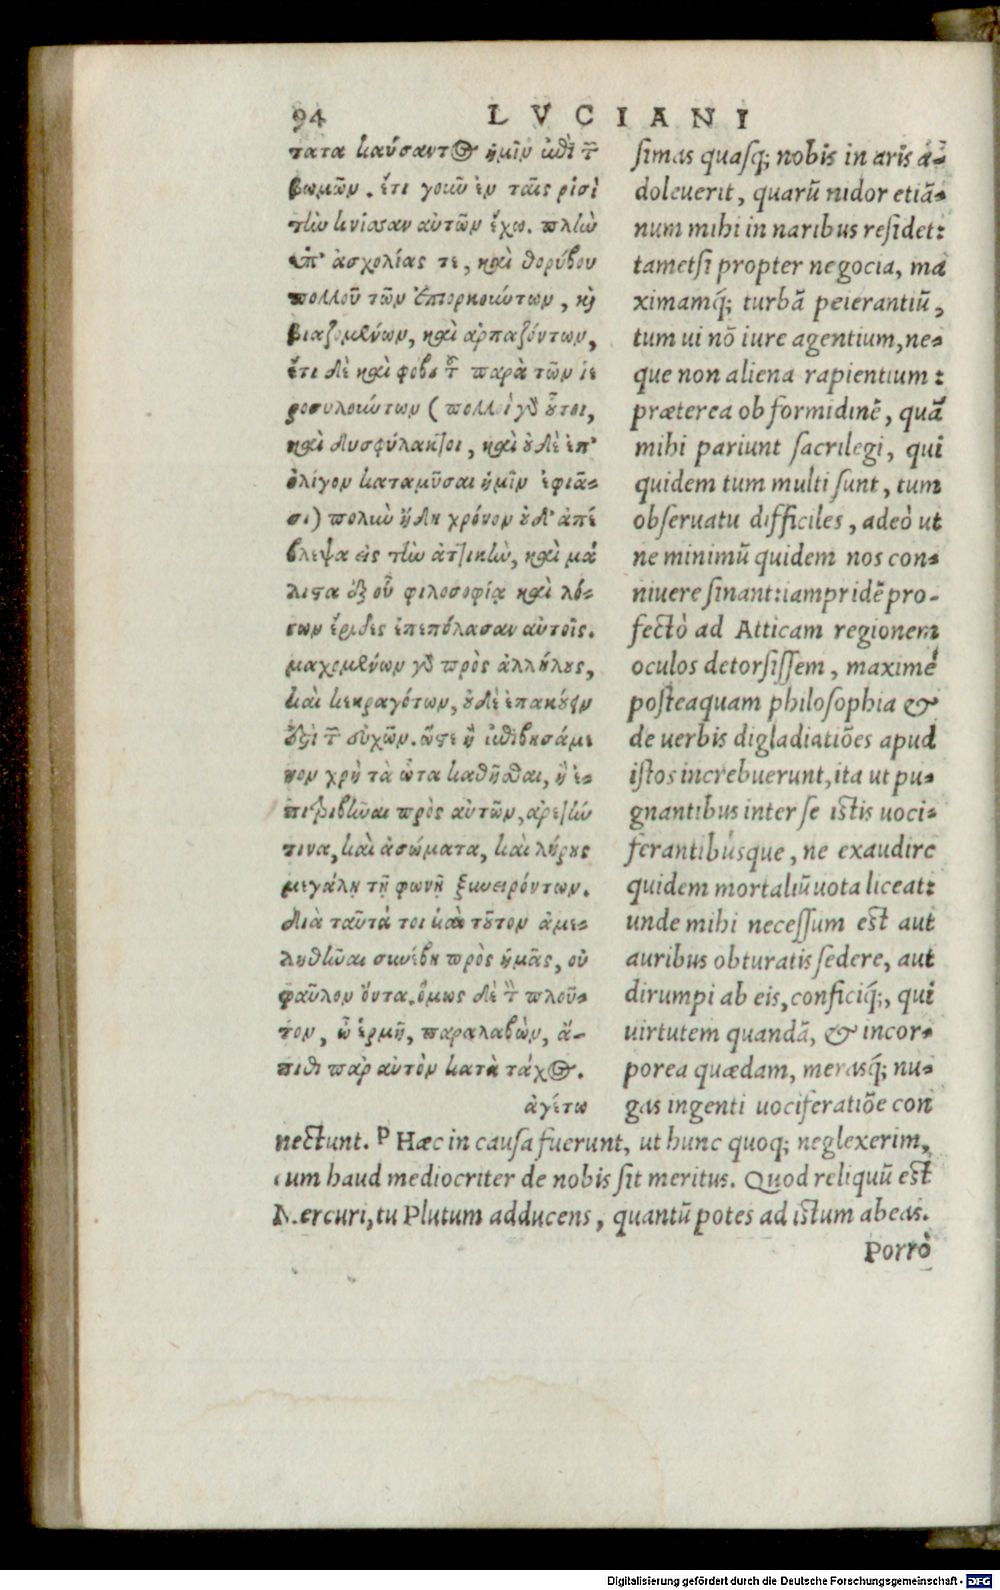 94 LVCIANI
τατα καύσαντος ἡμῖν ἐπὶ τ̃
βωμῶν. ἔτι γοιῦ ἐν ταῖς ῥισὶ
τὴν κνίσσαν αὐτῶν ἔχω. πλὴν
ὑπ' ἀσχολίας τε, καὶ θορύβου
πολλοῦ τῶν ἐπιορκούντων, κὶ
βιαζομένων, καὶ ἁρπαζόντων,
ἔτι δὲ καὶ φοβȣ τ̃ παρὰ τῶν ἱε
ροσυλούντων (πολλοὶ γὸ ȣ̃τοι,
καὶ δυσφύλακτοι, καὶ ȣ̓δὲ ἐπ'
ὀλίγον καταμῦσαι ἡμῖν ἐφιᾶ-
σι) πολιὺ ἤδη χρόνον ȣ̓δ' ἀπέ
βλεψα εἰς τὴν ἀττικὴν, καὶ μά
λιϛα ἐξ οὗ φιλοσοφία καὶ λό-
γων ἔριδες ἐπεπόλασαν αὐτοῖς.
μαχομένων γὸ πρὸς ἀλλήλȣς,
καὶ κεκραγότων, ȣ̓δὲ ἐπακούειν
ἔϛι τ̃ εὐχῶν. ὥϛε ἢ ἐπιβυσάμε
νον χρὴ τὰ ὦτα καθῆσθαι, ἢ ἐ-
πιτριβῆναι πρὸς αὐτῶν, ἀρετήν
τινα, καὶ ἀσώματα, καὶ λήρȣς
μεγάλῃ τῇ φωνῇ ξυνειρόντων.
διὰ ταῦτά τοι καὶ τȣ̃τον ἀμε-
ληθῆναι συνέβη πρὸς ἡμᾶς, οὐ
φαῦλον ὄντα. ὅμως δὲ τ̀ πλοῦ-
τον, ὦ ἑρμῆ, παραλαβὼν, ἄ-
πιθι παρ αὐτὸν κατὰ τάχος.
ἀγέτω
simas quasq; nobis in aris a-
doleuerit, quarũ nidor etiã-
num mihi in naribus residet:
tametsi propter negocia, ma
ximamq́; turbã peierantiũ,
tum ui nõ iure agentium, ne-
que non aliena rapientium:
præterea ob formidinẽ, quã
mihi pariunt sacrilegi, qui
quidem tum multi sunt, tum
obseruatu difficiles, adeò ut
ne minimũ quidem nos con-
niuere sinant: iampridẽ pro-
fectò ad Atticam regionem
oculos detorsissem, maximè
posteaquam philosophia &
de uerbis digladiatiões apud
istos increbuerunt, ita ut pu-
gnantibus inter se istis uoci-
ferantibúsque, ne exaudire
quidem mortaliũ uota liceat:
unde mihi necessum est aut
auribus obturatis sedere, aut
dirumpi ab eis, conficiq́;, qui
uirtutem quandã, & incor-
porea quædam, merasq́; nu-
gas ingenti uociferatiõe con
nectunt. P Hæc in causa fuerunt, ut hunc quoq; neglexerim,
cum haud mediocriter de nobis sit meritus. Quod reliquũ est
Mercuri, tu Plutum adducens, quantũ potes ad istum abeas.
Porrò
Digitalisierung gefördert durch die Deutsche Forschungsgemeinschaft - DFG